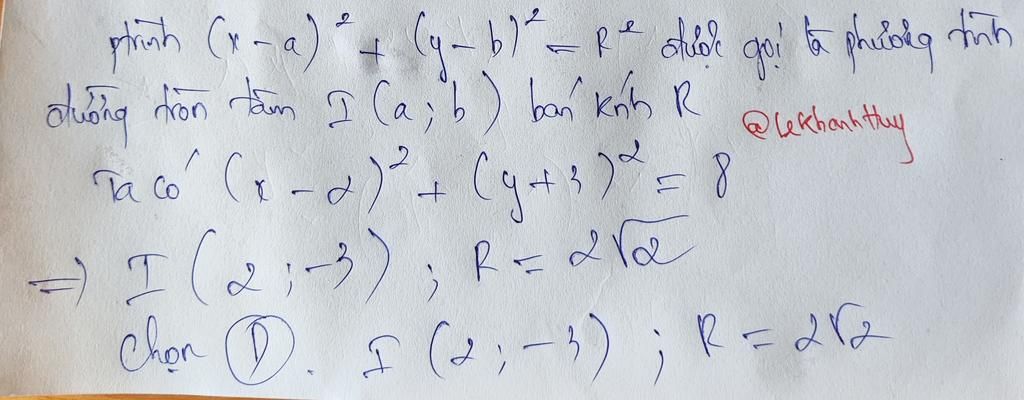 ptrình (x - a)² + (y - b)² = R² được gọi là phương trình
đường tròn tâm I (a ; b) bán kính R
@lekhanhthuy
Ta có (x - 2)² + (y + 3)² = 8
=> I (2 ; -3) ; R = 2√2
Chọn D. I (2 ; -3) ; R = 2√2